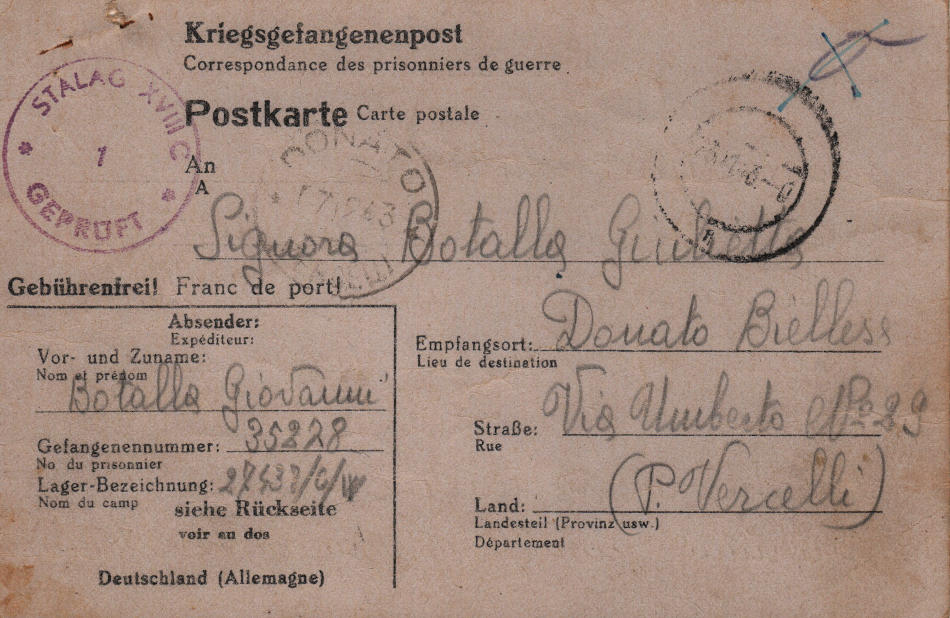 Kriegsgefangenenpost
Correspondance des prisonniers de guerre
STALAG XVIII C
1
GEPRÜFT
Postkarte Carte postale
An
A
DONATO
Signora Botalla Giulietta
Gebührenfrei! Franc de port!
Absender:
Expéditeur:
Vor- und Zuname:
Nom et prénom
Botalla Giovanni
Gefangenennummer: 35228
No du prisonnier
Lager-Bezeichnung:
Nom du camp
siehe Rückseite
voir au dos
Deutschland (Allemagne)
Empfangsort: Donato Biellese
Lieu de destination
Straße: Via Umberto No 29
Rue
(P. Vercelli)
Land:
Landesteil (Provinz usw.)
Département